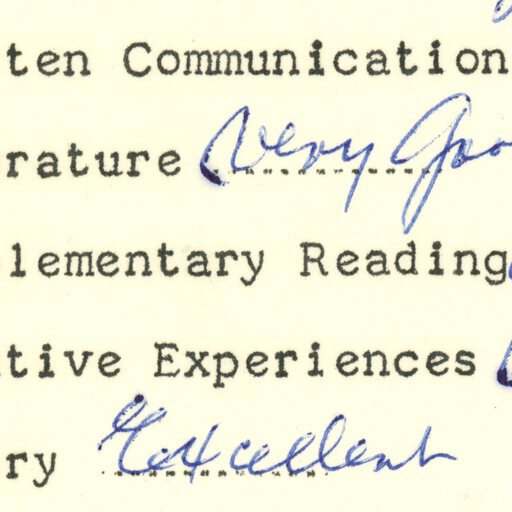 ten Communication
rature Very Goo
lementary Reading
tive Experiences
ry Excellent